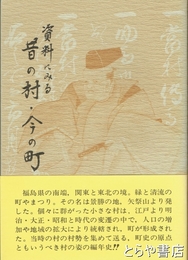 資料にみる
昔の村・今の町
福島県の南端、関東と東北の境、緑と清流の
町やまつり。その名は景勝の地、矢祭山より発
した。個々に群がった小さな村は、江戸より明
治・大正・昭和と時代の変遷の中で、人口の増
加や地域の拡大により統轄され、町が形成され
た。当時の村の村勢を集めて送る、町史の原点
ともいうべき村の姿の編年史!!
とらや書房